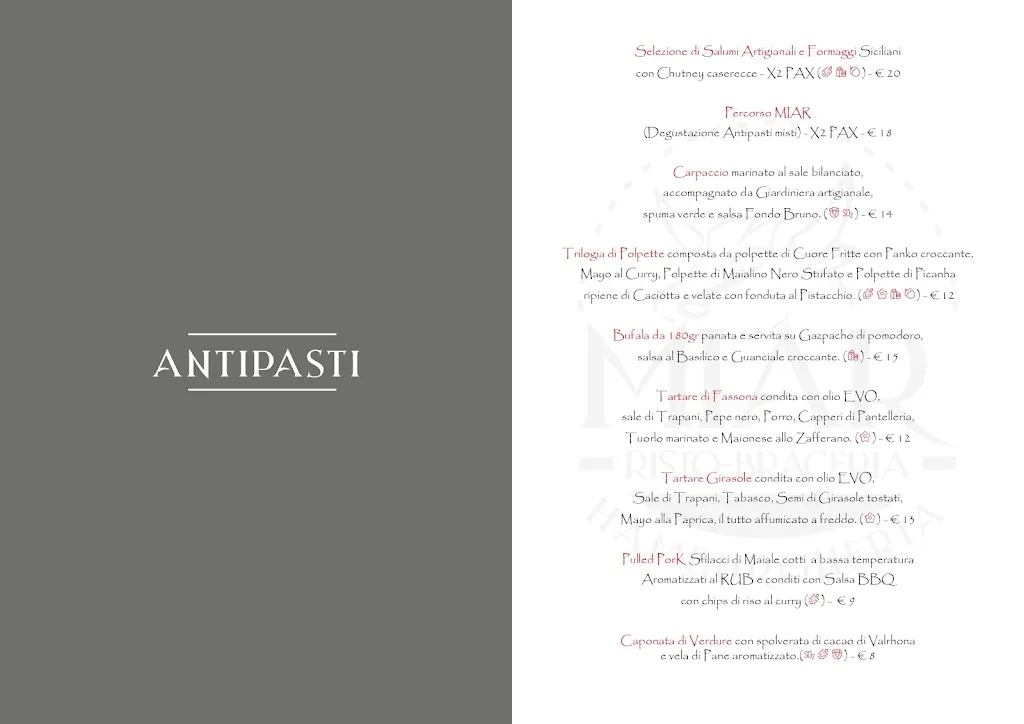 ANTIPASTI
Selezione di Salumi Artigianali e Formaggi Siciliani
con Chutney caserecce - X2 PAX ( ) - € 20
Percorso MIAR
(Degustazione Antipasti misti) - X2 PAX - € 18
Carpaccio marinato al sale bilanciato,
accompagnato da Giardiniera artigianale,
spuma verde e salsa Fondo Bruno. ( SO₂ ) - € 14
Trilogia di Polpette composta da polpette di Cuore Fritte con Panko croccante,
Mayo al Curry, Polpette di Maialino Nero Stufato e Polpette di Picanha
ripiene di Caciotta e velate con fonduta al Pistacchio. ( ) - € 12
Bufala da 180gr panata e servita su Gazpacho di pomodoro,
salsa al Basilico e Guanciale croccante. ( ) - € 15
Tartare di Fassona condita con olio EVO,
sale di Trapani, Pepe nero, Porro, Capperi di Pantelleria,
Tuorlo marinato e Maionese allo Zafferano. ( ) - € 12
Tartare Girasole condita con olio EVO,
Sale di Trapani, Tabasco, Semi di Girasole tostati,
Mayo alla Paprica, il tutto affumicato a freddo. ( ) - € 13
Pulled PorK Sfilacci di Maiale cotti a bassa temperatura
Aromatizzati al RUB e conditi con Salsa BBQ
con chips di riso al curry ( ) - € 9
Caponata di Verdure con spolverata di cacao di Valrhona
e vela di Pane aromatizzato.(SO₂ ) - € 8
MIAR
RISTO-BRACERIA
HAMBURGHERIA